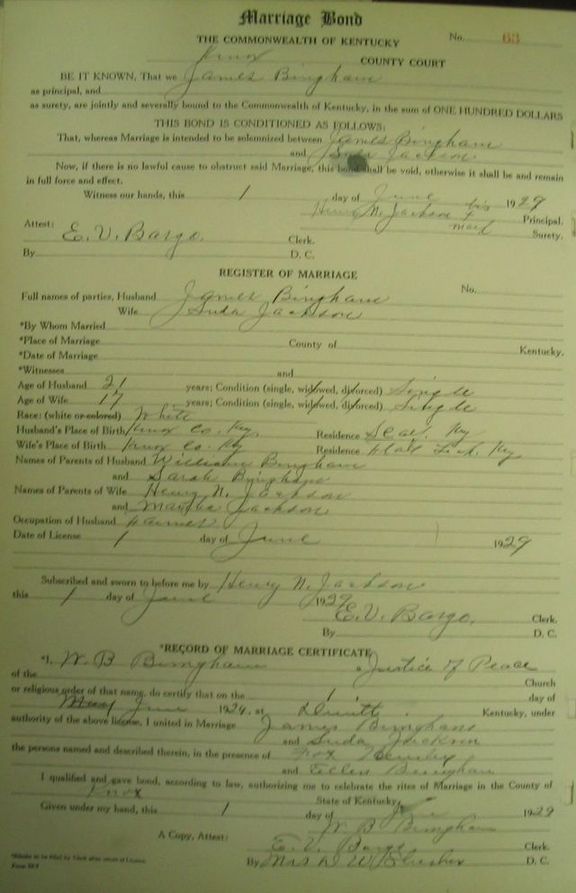 Marriage Bond
THE COMMONWEALTH OF KENTUCKY No. 63
Knox COUNTY COURT
BE IT KNOWN, That we James Bingham
as principal, and
as surety, are jointly and severally bound to the Commonwealth of Kentucky, in the sum of ONE HUNDRED DOLLARS
THIS BOND IS CONDITIONED AS FOLLOWS:
That, whereas Marriage is intended to be solemnized between James Bingham
and Suda Jackson
Now, if there is no lawful cause to obstruct said Marriage, this bond shall be void, otherwise it shall be and remain
in full force and effect.
Witness our hands, this 1 day of June 1929
Henry N. Jackson his x mark Principal.
Attest: Surety.
E. V. Bargo. Clerk.
By D. C.
REGISTER OF MARRIAGE
No.
Full names of parties, Husband James Bingham
Wife Suda Jackson
*By Whom Married
*Place of Marriage County of Kentucky.
*Date of Marriage
*Witnesses and
Age of Husband 21 years; Condition (single, widowed, divorced) Single
Age of Wife 17 years; Condition (single, widowed, divorced) Single
Race: (white or colored) White
Husband's Place of Birth Knox Co. Ky Residence Ky
Wife's Place of Birth Knox Co. Ky Residence Flat Lick, Ky
Names of Parents of Husband William Bingham
and Sarah Bingham
Names of Parents of Wife Henry N. Jackson
and Martha Jackson
Occupation of Husband Farmer
Date of License 1 day of June 1929
Subscribed and sworn to before me by Henry N. Jackson
this 1 day of June 1929
E. V. Bargo. Clerk.
By D. C.
*RECORD OF MARRIAGE CERTIFICATE
*I, W. B Bingham a Justice of Peace
of the Church
or religious order of that name, do certify that on the 1 day of
June 1929, at Kentucky, under
authority of the above license, I united in Marriage James Bingham
and Suda Jackson
the persons named and described therein, in the presence of
and Ellen Bingham
I qualified and gave bond, according to law, authorizing me to celebrate the rites of Marriage in the County of
Knox State of Kentucky.
Given under my hand, this 1 day of June 1929
W B Bingham
A Copy, Attest: E. V. Bargo Clerk.
By Mrs W D. C.